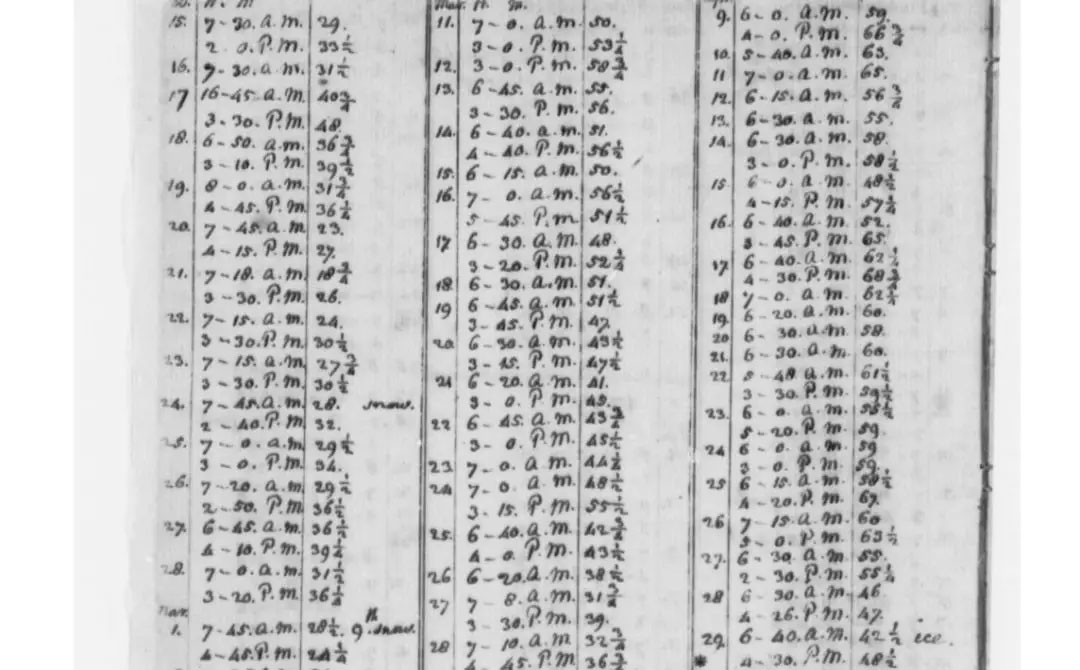 15. 7-30. a.m. 29.
2. 0. P.m. 33 1/2
16. 7-30. a.m. 31 1/2
17 16-45. a.m. 40 3/4
3-30. P.m. 48.
18. 6-50. a.m. 36 3/4
3-10. P.m. 39 1/2
19. 8-0. a.m. 31 3/4
4-45. P.m. 36 1/4
20. 7-45. a.m. 23.
4-15. P.m. 27.
21. 7-18. a.m. 18 3/4
3-30. P.m. 26.
22. 7-15. a.m. 24.
3-30. P.m. 30 1/2
23. 7-15. a.m. 27 3/4
3-30. P.m. 30 1/2
24. 7-45. a.m. 28. snow.
2-40. P.m. 32.
25. 7-0. a.m. 29 1/2
3-0. P.m. 34.
26. 7-20. a.m. 29 1/2
2-50. P.m. 36 1/2
27. 6-45. a.m. 36 1/2
4-10. P.m. 39 1/4
28. 7-0. a.m. 31 1/2
3-20. P.m. 36 1/4
Mar.
1. 7-45. a.m. 28 1/2. 9th snow.
4-45. P.m. 24 1/4
Mar. H. m.
11. 7-0. a.m. 50.
3-0. P.m. 53 1/4
12. 3-0. P.m. 58 3/4
13. 6-45. a.m. 55.
3-30. P.m. 56.
14. 6-40. a.m. 51.
4-40. P.m. 56 1/2
15. 6-15. a.m. 50.
16. 7-0. a.m. 56 1/2
5-45. P.m. 51 1/2
17 6-30. a.m. 48.
3-20. P.m. 52 3/4
18. 6-30. a.m. 51.
19 6-45. a.m. 51 1/2
3-45. P.m. 47
20. 6-30. a.m. 43 1/2
3-15. P.m. 47 1/2
21 6-20. a.m. 41.
3-0. P.m. 45.
22 6-45. a.m. 43 3/4
3-0. P.m. 45 1/2
23 7-0. a.m. 44 1/2
24 7-0. a.m. 48 1/2
3-15. P.m. 55 1/2
25. 6-40. a.m. 42 3/4
4-0. P.m. 43 1/2
26 6-20. a.m. 38 1/2
27 7-8. a.m. 31 3/4
3-30. P.m. 39.
28 7-10. a.m. 32 3/4
4-45. P.m. 36 3/4
9. 6-0. a.m. 59.
4-0. P.m. 66 3/4
10. 5-40. a.m. 63.
11 7-0. a.m. 65.
12. 6-15. a.m. 56 3/4
13. 6-30. a.m. 55.
14. 6-30. a.m. 58.
3-0. P.m. 58 1/2
15 6-0. a.m. 48 1/2
4-15. P.m. 57 1/4
16. 6-40. a.m. 52.
3-45. P.m. 65.
17 6-40. a.m. 62 1/2
4-30. P.m. 68 3/4
18 7-0. a.m. 62 1/4
19. 6-20. a.m. 60.
20 6-30. a.m. 58.
21. 6-30. a.m. 60.
22 5-48. a.m. 61 1/2
3-30. P.m. 59 1/2
23. 6-0. a.m. 55 1/2
5-20. P.m. 59.
24 6-0. a.m. 59
3-0. P.m. 59.
25 6-15. a.m. 58 1/2
4-20. P.m. 67.
26 7-15. a.m. 60
5-0. P.m. 63 1/2
27. 6-30. a.m. 55.
2-30. P.m. 55 1/4
28 6-30. a.m. 46
4-26. P.m. 47.
29. 6-40. a.m. 42 1/2 ice.
4-30. P.m. 48 1/2